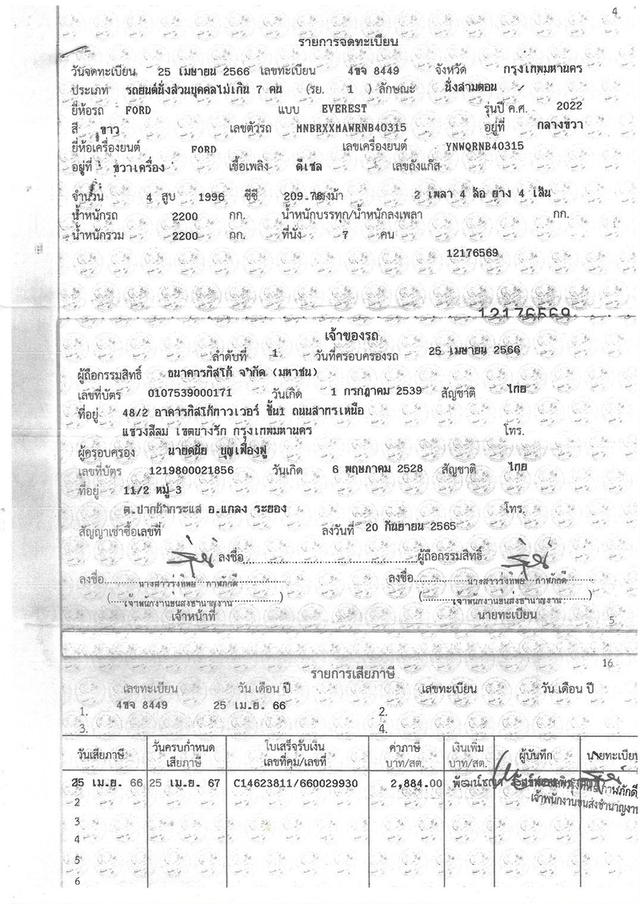 4
รายการจดทะเบียน
วันจดทะเบียน 25 เมษายน 2566 เลขทะเบียน 4ขจ 8449 จังหวัด กรุงเทพมหานคร
ประเภท รถยนต์นั่งส่วนบุคคลไม่เกิน 7 คน (รย. 1 ) ลักษณะ นั่งสามตอน
ยี่ห้อรถ FORD แบบ EVEREST รุ่นปี ค.ศ. 2022
สี ขาว เลขตัวรถ MNBRXXMAWRNB40315 อยู่ที่ กลางขวา
ยี่ห้อเครื่องยนต์ FORD เลขเครื่องยนต์ YNWQRNB40315
อยู่ที่ ขวาเครื่อง เชื้อเพลิง ดีเซล เลขถังแก๊ส
จำนวน 4 สูบ 1996 ซีซี 209.78 แรงม้า 2 เพลา 4 ล้อ ยาง 4 เส้น
น้ำหนักรถ 2200 กก. น้ำหนักบรรทุก/น้ำหนักลงเพลา กก.
น้ำหนักรวม 2200 กก. ที่นั่ง 7 คน
12176569
12176569
เจ้าของรถ
ลำดับที่ 1 วันที่ครอบครองรถ 25 เมษายน 2566
ผู้ถือกรรมสิทธิ์ ธนาคารทิสโก้ จำกัด (มหาชน)
เลขที่บัตร 0107539000171 วันเกิด 1 กรกฎาคม 2539 สัญชาติ ไทย
ที่อยู่ 48/2 อาคารทิสโก้ทาวเวอร์ ชั้น1 ถนนสาทรเหนือ
แขวงสีลม เขตบางรัก กรุงเทพมหานคร โทร.
ผู้ครอบครอง นายดนัย บุญเฟื่องฟู
เลขที่บัตร 1219800021856 วันเกิด 6 พฤษภาคม 2528 สัญชาติ ไทย
ที่อยู่ 11/2 หมู่ 3
ต.ปากน้ำกระแส อ.แกลง ระยอง โทร.
สัญญาเช่าซื้อเลขที่ ลงวันที่ 20 กันยายน 2565
ลงชื่อ ผู้ถือกรรมสิทธิ์
ลงชื่อ นางสาวรุ่งทิพย์ กาฬภักดี ลงชื่อ นางสาวรุ่งทิพย์ กาฬภักดี
( เจ้าพนักงานขนส่งชำนาญงาน ) ( เจ้าพนักงานขนส่งชำนาญงาน )
เจ้าหน้าที่ นายทะเบียน
5
16
รายการเสียภาษี
เลขทะเบียน วัน เดือน ปี เลขทะเบียน วัน เดือน ปี
1. 4ขจ 8449 25 เม.ย. 66 2.
3. 4.
วันเสียภาษี วันครบกำหนดเสียภาษี ใบเสร็จรับเงิน เลขที่คุม/เลขที่ ค่าภาษี บาท/สต. เงินเพิ่ม บาท/สต. ผู้บันทึก นายทะเบียน
25 เม.ย. 66 25 เม.ย. 67 C14623811/660029930 2,884.00 กาฬภักดี
เจ้าพนักงานขนส่งชำนาญงาน
2
3
4
5
6